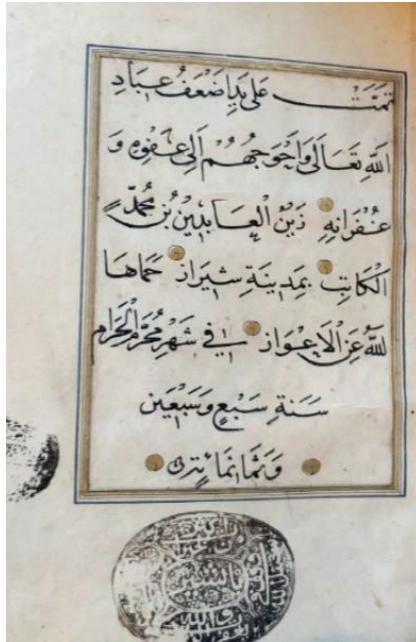 تمت على يد اضعف عباد
الله تعالى واحوجهم الى عفوه و
غفرانه زين العابدين بن محمد
الكاتب بمدينة شيراز حماها
الله عن الاعواز في شهر محرم الحرام
سنة سبع وسبعين
وثمانمائة